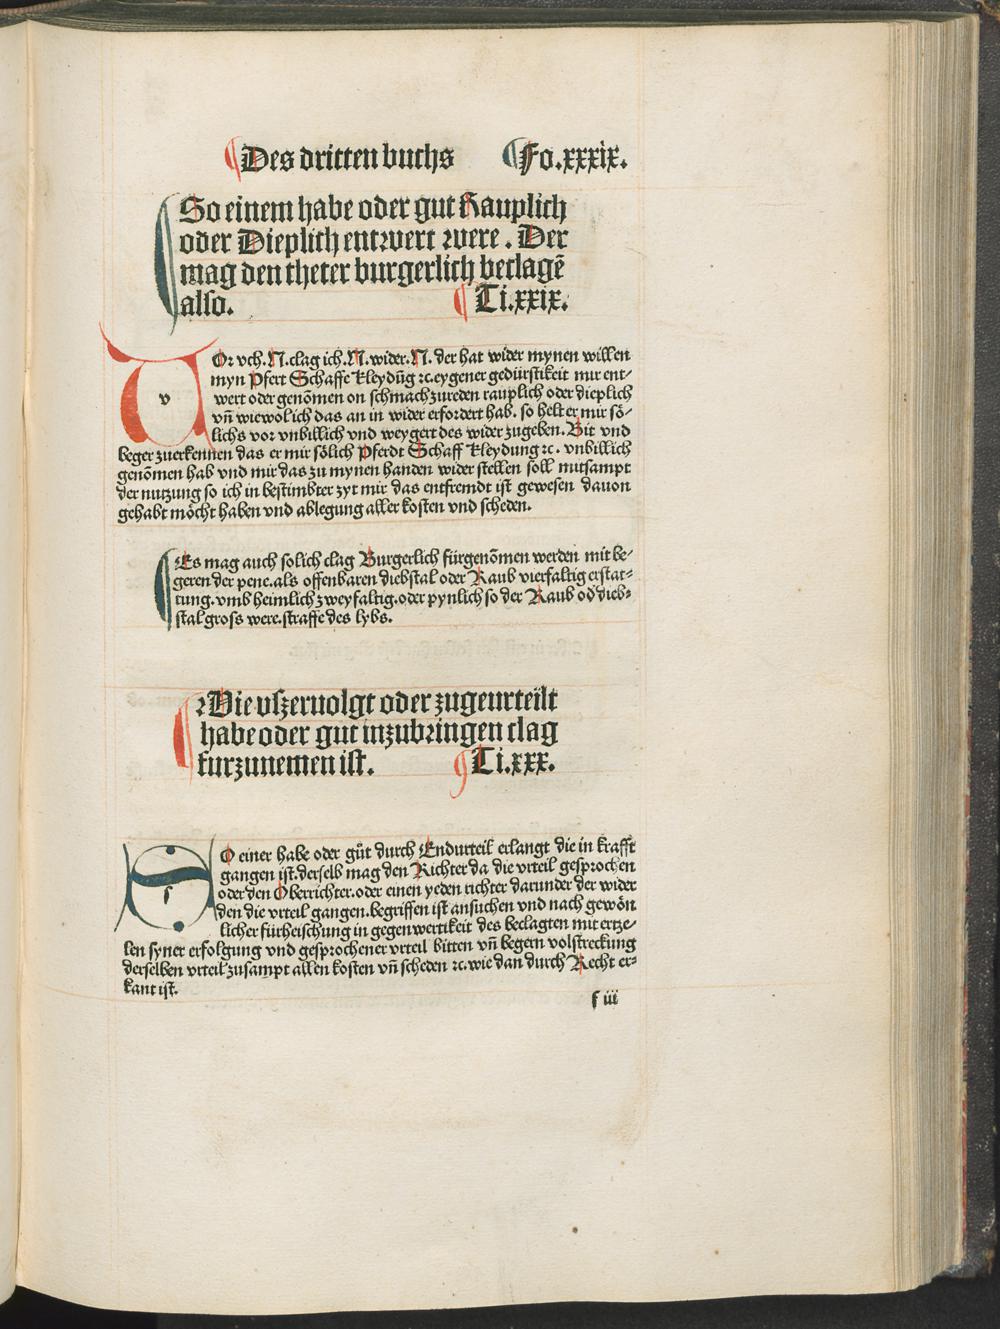 Des dritten buchs Fo.xxxix.
So einem habe oder gut Rauplich
oder Dieplich entwert were. Der
mag den theter burgerlich beclagē
also. Ti.xxix.
VOr vch.N.clag ich.N.wider.N. der hat wider mynen willen
myn Pfert Schaffe Kleydūg ꝛc.eygener gedürstikeit mir ent-
wert oder genōmen on schmach zureden rauplich oder dieplich
vn̄ wiewol ich das an in wider erfordert hab. so helt er mir sō-
lichs vor vnbillich vnd weygert des wider zugeben. Bit vnd
beger zuerkennen das er mir sölich Pferdt Schaff Kleydung ꝛc. vnbillich
genōmen hab vnd mir das zu mynen handen wider stellen soll mitsampt
der nutzung so ich in bestimbter zyt mir das entfremdt ist gewesen dauon
gehabt möcht haben vnd ablegung aller kosten vnd scheden.
Es mag auch solich clag Burgerlich fürgenōmen werden mit be-
geren der pene.als offenbaren diebstal oder Raub vierfaltig erstat-
tung.vmb heimlich zweyfaltig.oder pynlich so der Raub od dieb-
stal gross were.straffe des lybs.
Die vszeruolgt oder zugeurteilt
habe oder gut inzubringen clag
furzunemen ist. Ti.xxx.
SO einer habe oder gůt durch Endurteil erlangt die in krafft
gangen ist.derselb mag den Richter da die vrteil gesprochen
oder den Oberrichter.oder einen yeden richter darunder der wider
den die vrteil gangen.begriffen ist ansuchen vnd nach gewōn
licher fürheischung in gegenwertikeit des beclagten mit erze-
len syner erfolgung vnd gesprochener vrteil bitten vn̄ begern volstreckung
derselben vrteil zusampt allen kosten vn̄ scheden ꝛc.wie dan durch Recht er-
kant ist.
f iii